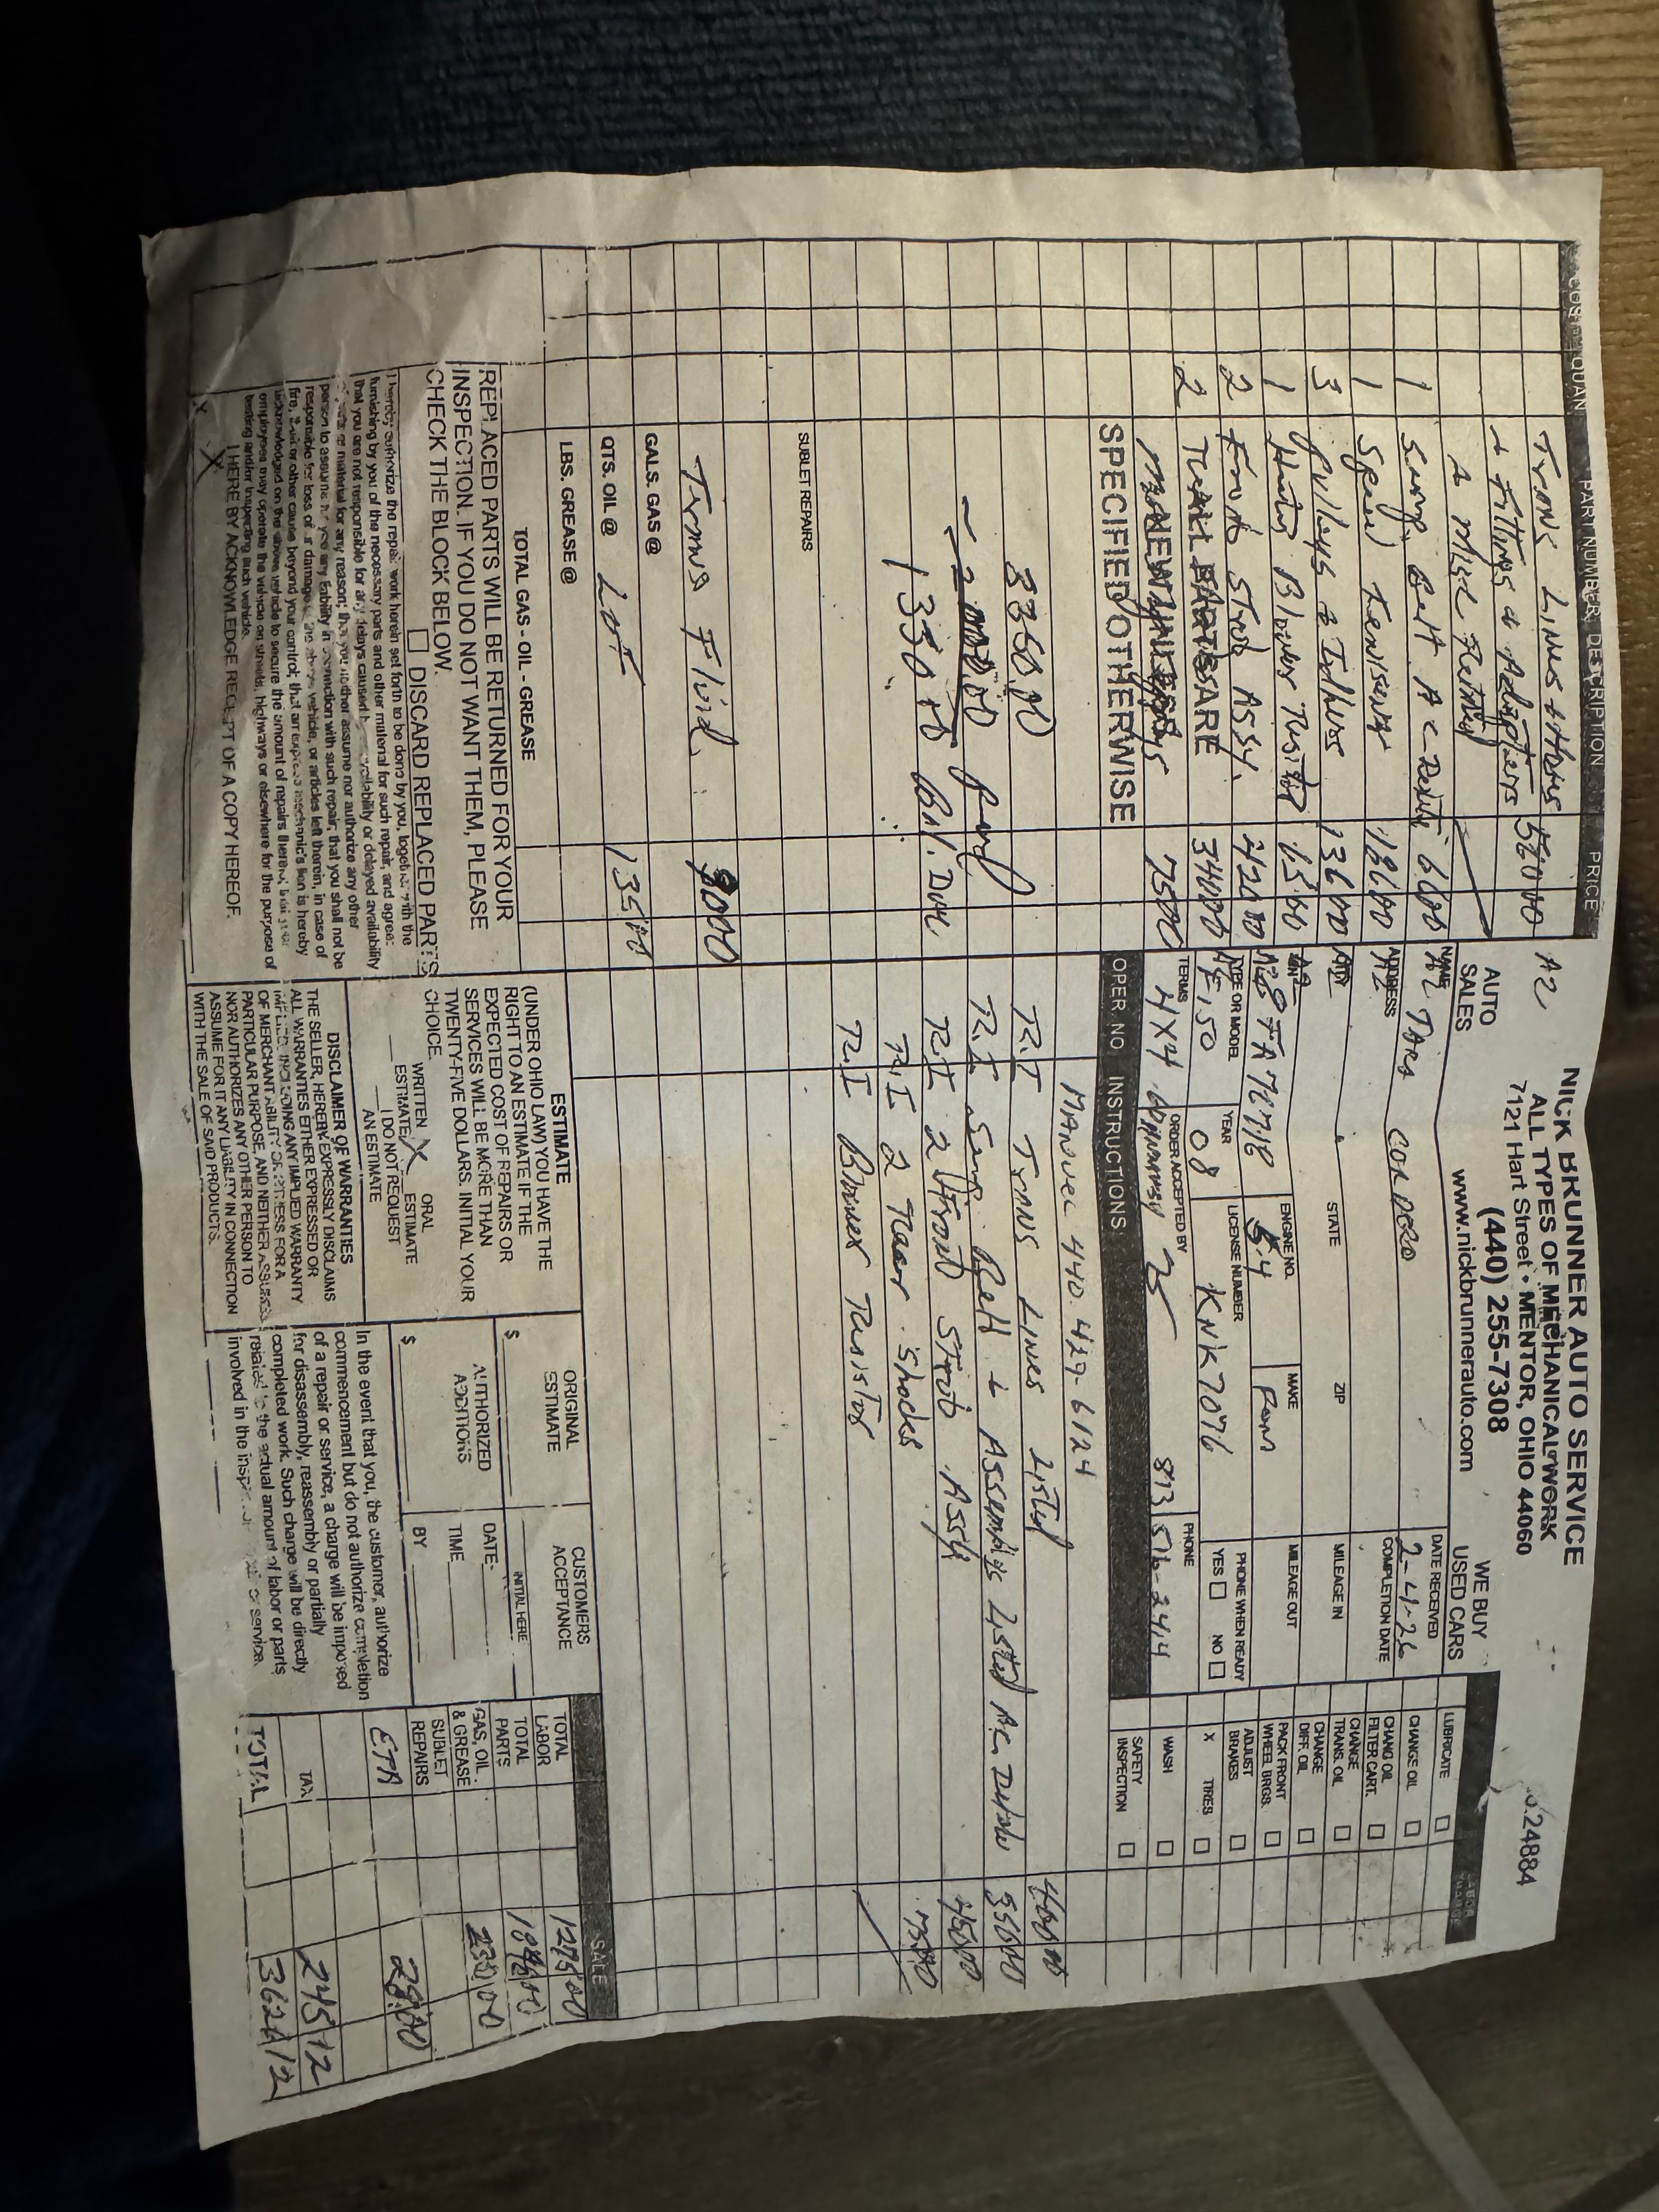 NICK BRUNNER AUTO SERVICE
ALL TYPES OF MECHANICAL WORK
7121 Hart Street • MENTOR, OHIO 44060
(440) 255-7308
www.nickbrunnerauto.com
AUTO SALES
WE BUY USED CARS
24884
A2
COST QUAN. PART NUMBER, DESCRIPTION PRICE
Trans Lines 580 00
+ Fittings + Adapters
+ Misc
1 Serp. Belt A C 66 00
1 186 00
3 Pulleys + Idlers 136 00
1 Blower 65 00
2 Front Strut Assy. 420 00
2 340 00
75 00
ALL PARTS ARE NEW UNLESS
SPECIFIED OTHERWISE
3350.00
- 2000.00 Paid
1350.00 Bal. Due
SUBLET REPAIRS
Trans Fluid
GALS. GAS @
QTS. OIL @ LOF 135 00
LBS. GREASE @
TOTAL GAS - OIL - GREASE
REPLACED PARTS WILL BE RETURNED FOR YOUR
INSPECTION. IF YOU DO NOT WANT THEM, PLEASE
CHECK THE BLOCK BELOW.
DISCARD REPLACED PARTS
I hereby authorize the repair work herein set forth to be done by you, together with the
furnishing by you of the necessary parts and other material for such repair, and agree:
that you are not responsible for any delays caused by unavailability or delayed availability
of parts or material for any reason; that you neither assume nor authorize any other
person to assume for you any liability in connection with such repair; that you shall not be
responsible for loss of or damage to the above vehicle, or articles left therein, in case of
fire, theft or other cause beyond your control; that an express mechanic's lien is hereby
acknowledged on the above vehicle to secure the amount of repairs thereto; that your
employees may operate the vehicle on streets, highways or elsewhere for the purpose of
testing and/or inspecting such vehicle.
I HERE BY ACKNOWLEDGE RECEIPT OF A COPY HEREOF.
X X
NAME CORDERO
DATE RECEIVED 2-4-26
ADDRESS
COMPLETION DATE
STATE ZIP
MILEAGE IN
ENGINE NO. 5.4
MAKE Ford
MILEAGE OUT
TYPE OR MODEL F150
YEAR 08
LICENSE NUMBER KNK7076
PHONE WHEN READY
YES NO
TERMS 4x4
ORDER ACCEPTED BY
PHONE
813 516-2414
OPER. NO. INSTRUCTIONS
440-429-6124
R.I Trans Lines Listed 400 00
R.I Serp. Belt + Assembly Listed A.C. Delete 550 00
R.I 2 Front Strut Assy
R.I 2 Rear Shocks
R.I Blower Resistor
LUBRICATE
CHANGE OIL
CHANG OIL FILTER CART.
CHANGE TRANS. OIL
CHANGE DIFF. OIL
PACK FRONT WHEEL BRGS.
ADJUST BRAKES
X TIRES
WASH
SAFETY INSPECTION
LABOR CHARGE
ESTIMATE
(UNDER OHIO LAW) YOU HAVE THE
RIGHT TO AN ESTIMATE IF THE
EXPECTED COST OF REPAIRS OR
SERVICES WILL BE MORE THAN
TWENTY-FIVE DOLLARS. INITIAL YOUR
CHOICE.
WRITTEN ESTIMATE X ORAL ESTIMATE
I DO NOT REQUEST AN ESTIMATE
ORIGINAL ESTIMATE
$
AUTHORIZED ADDITIONS
$
CUSTOMERS ACCEPTANCE
INITIAL HERE
DATE
TIME
BY
DISCLAIMER OF WARRANTIES
THE SELLER, HEREBY EXPRESSLY DISCLAIMS
ALL WARRANTIES EITHER EXPRESSED OR
IMPLIED, INCLUDING ANY IMPLIED WARRANTY
OF MERCHANTABILITY OR FITNESS FOR A
PARTICULAR PURPOSE, AND NEITHER ASSUMES
NOR AUTHORIZES ANY OTHER PERSON TO
ASSUME FOR IT ANY LIABILITY IN CONNECTION
WITH THE SALE OF SAID PRODUCTS.
In the event that you, the customer, authorize
commencement but do not authorize completion
of a repair or service, a charge will be imposed
for disassembly, reassembly or partially
completed work. Such charge will be directly
related to the actual amount of labor or parts
involved in the inspection, repair or service.
SALE
TOTAL LABOR 1275 00
TOTAL PARTS
GAS, OIL & GREASE
SUBLET REPAIRS
EPA 28.00
TAX 245 12
TOTAL 3621 12